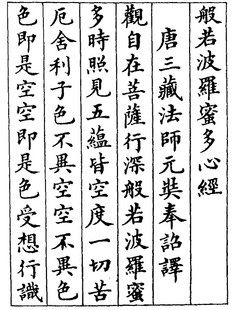 般若波羅蜜多心經
唐三藏法師元奘奉詔譯
觀自在菩薩行深般若波羅蜜
多時照見五蘊皆空度一切苦
厄舍利子色不異空空不異色
色即是空空即是色受想行識